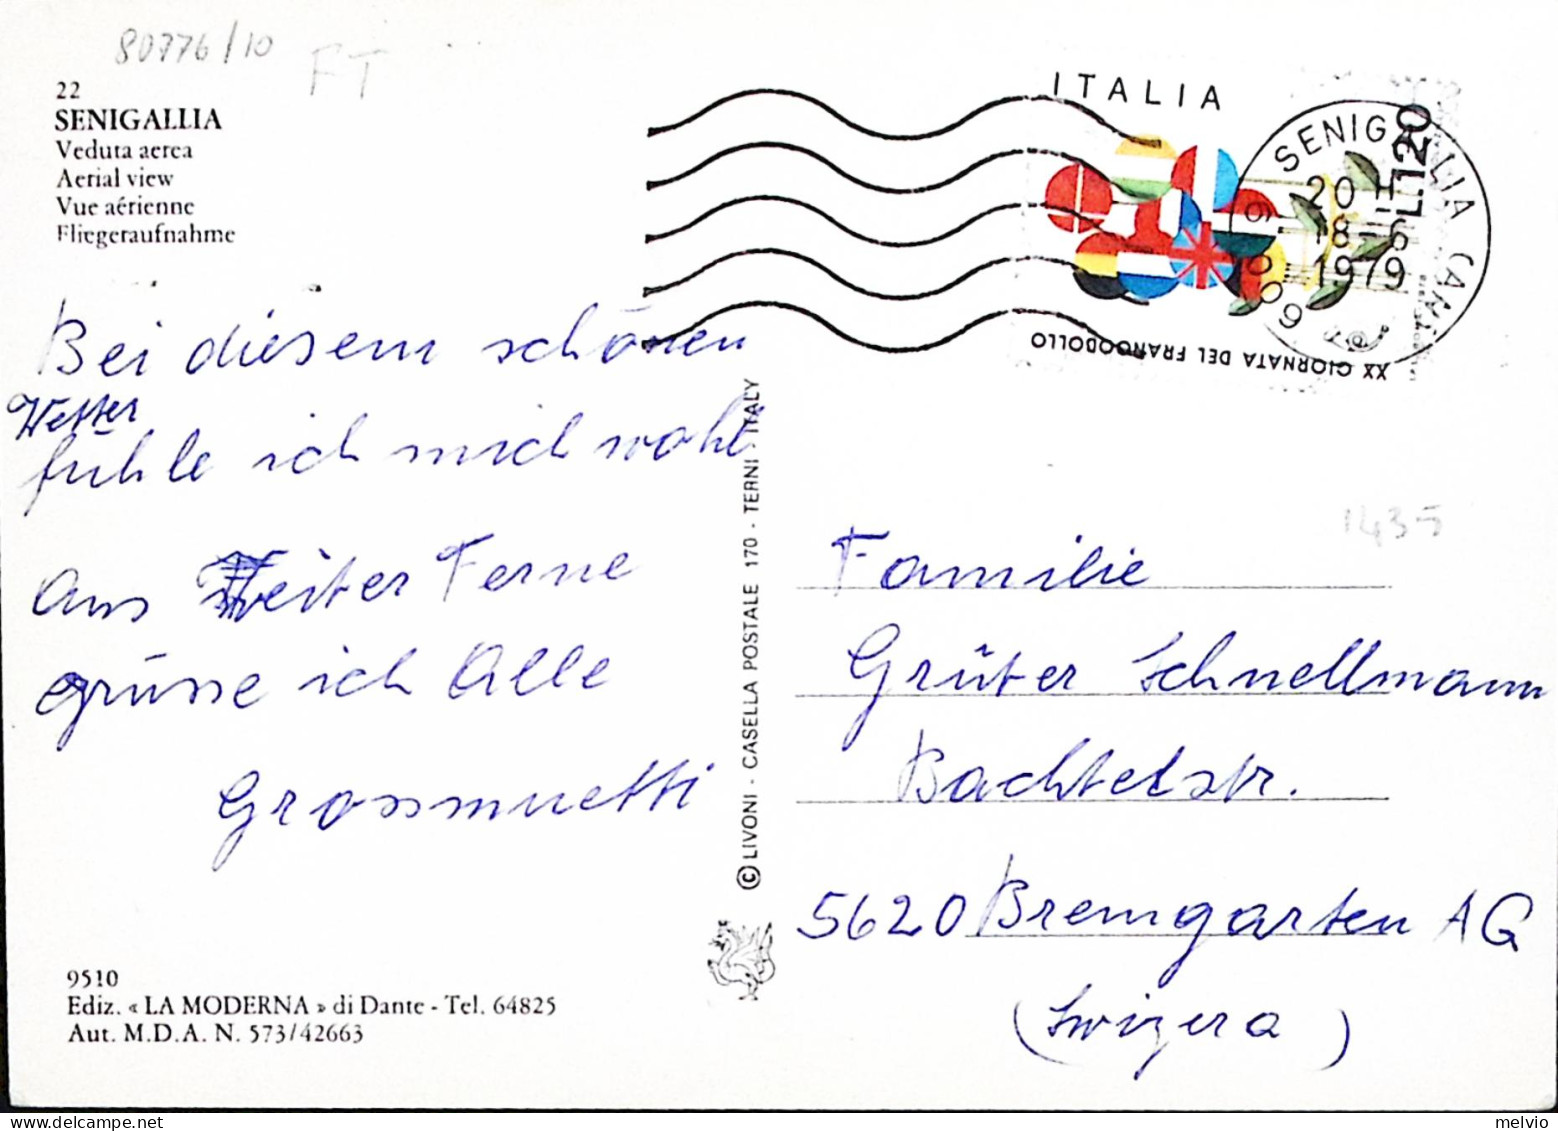 80776/10
FT
22
SENIGALLIA
Veduta aerea
Aerial view
Vue aérienne
Fliegeraufnahme
ITALIA
L120
XX GIORNATA DEL FRANCOBOLLO
SENIGALLIA (AN)
20 H
18-6
1979
60019
Bei diesem schönen
Wetter
fühle ich mich wohl
Aus Weiter Ferne
grüsse ich Alle
Grossmuetti
© LIVONI - CASELLA POSTALE 170 - TERNI - ITALY
1435
Familie
Grüter Schnellmann
Bachtelstr.
5620 Bremgarten AG
(Swizera)
9510
Ediz. « LA MODERNA » di Dante - Tel. 64825
Aut. M.D.A. N. 573/42663
melvio